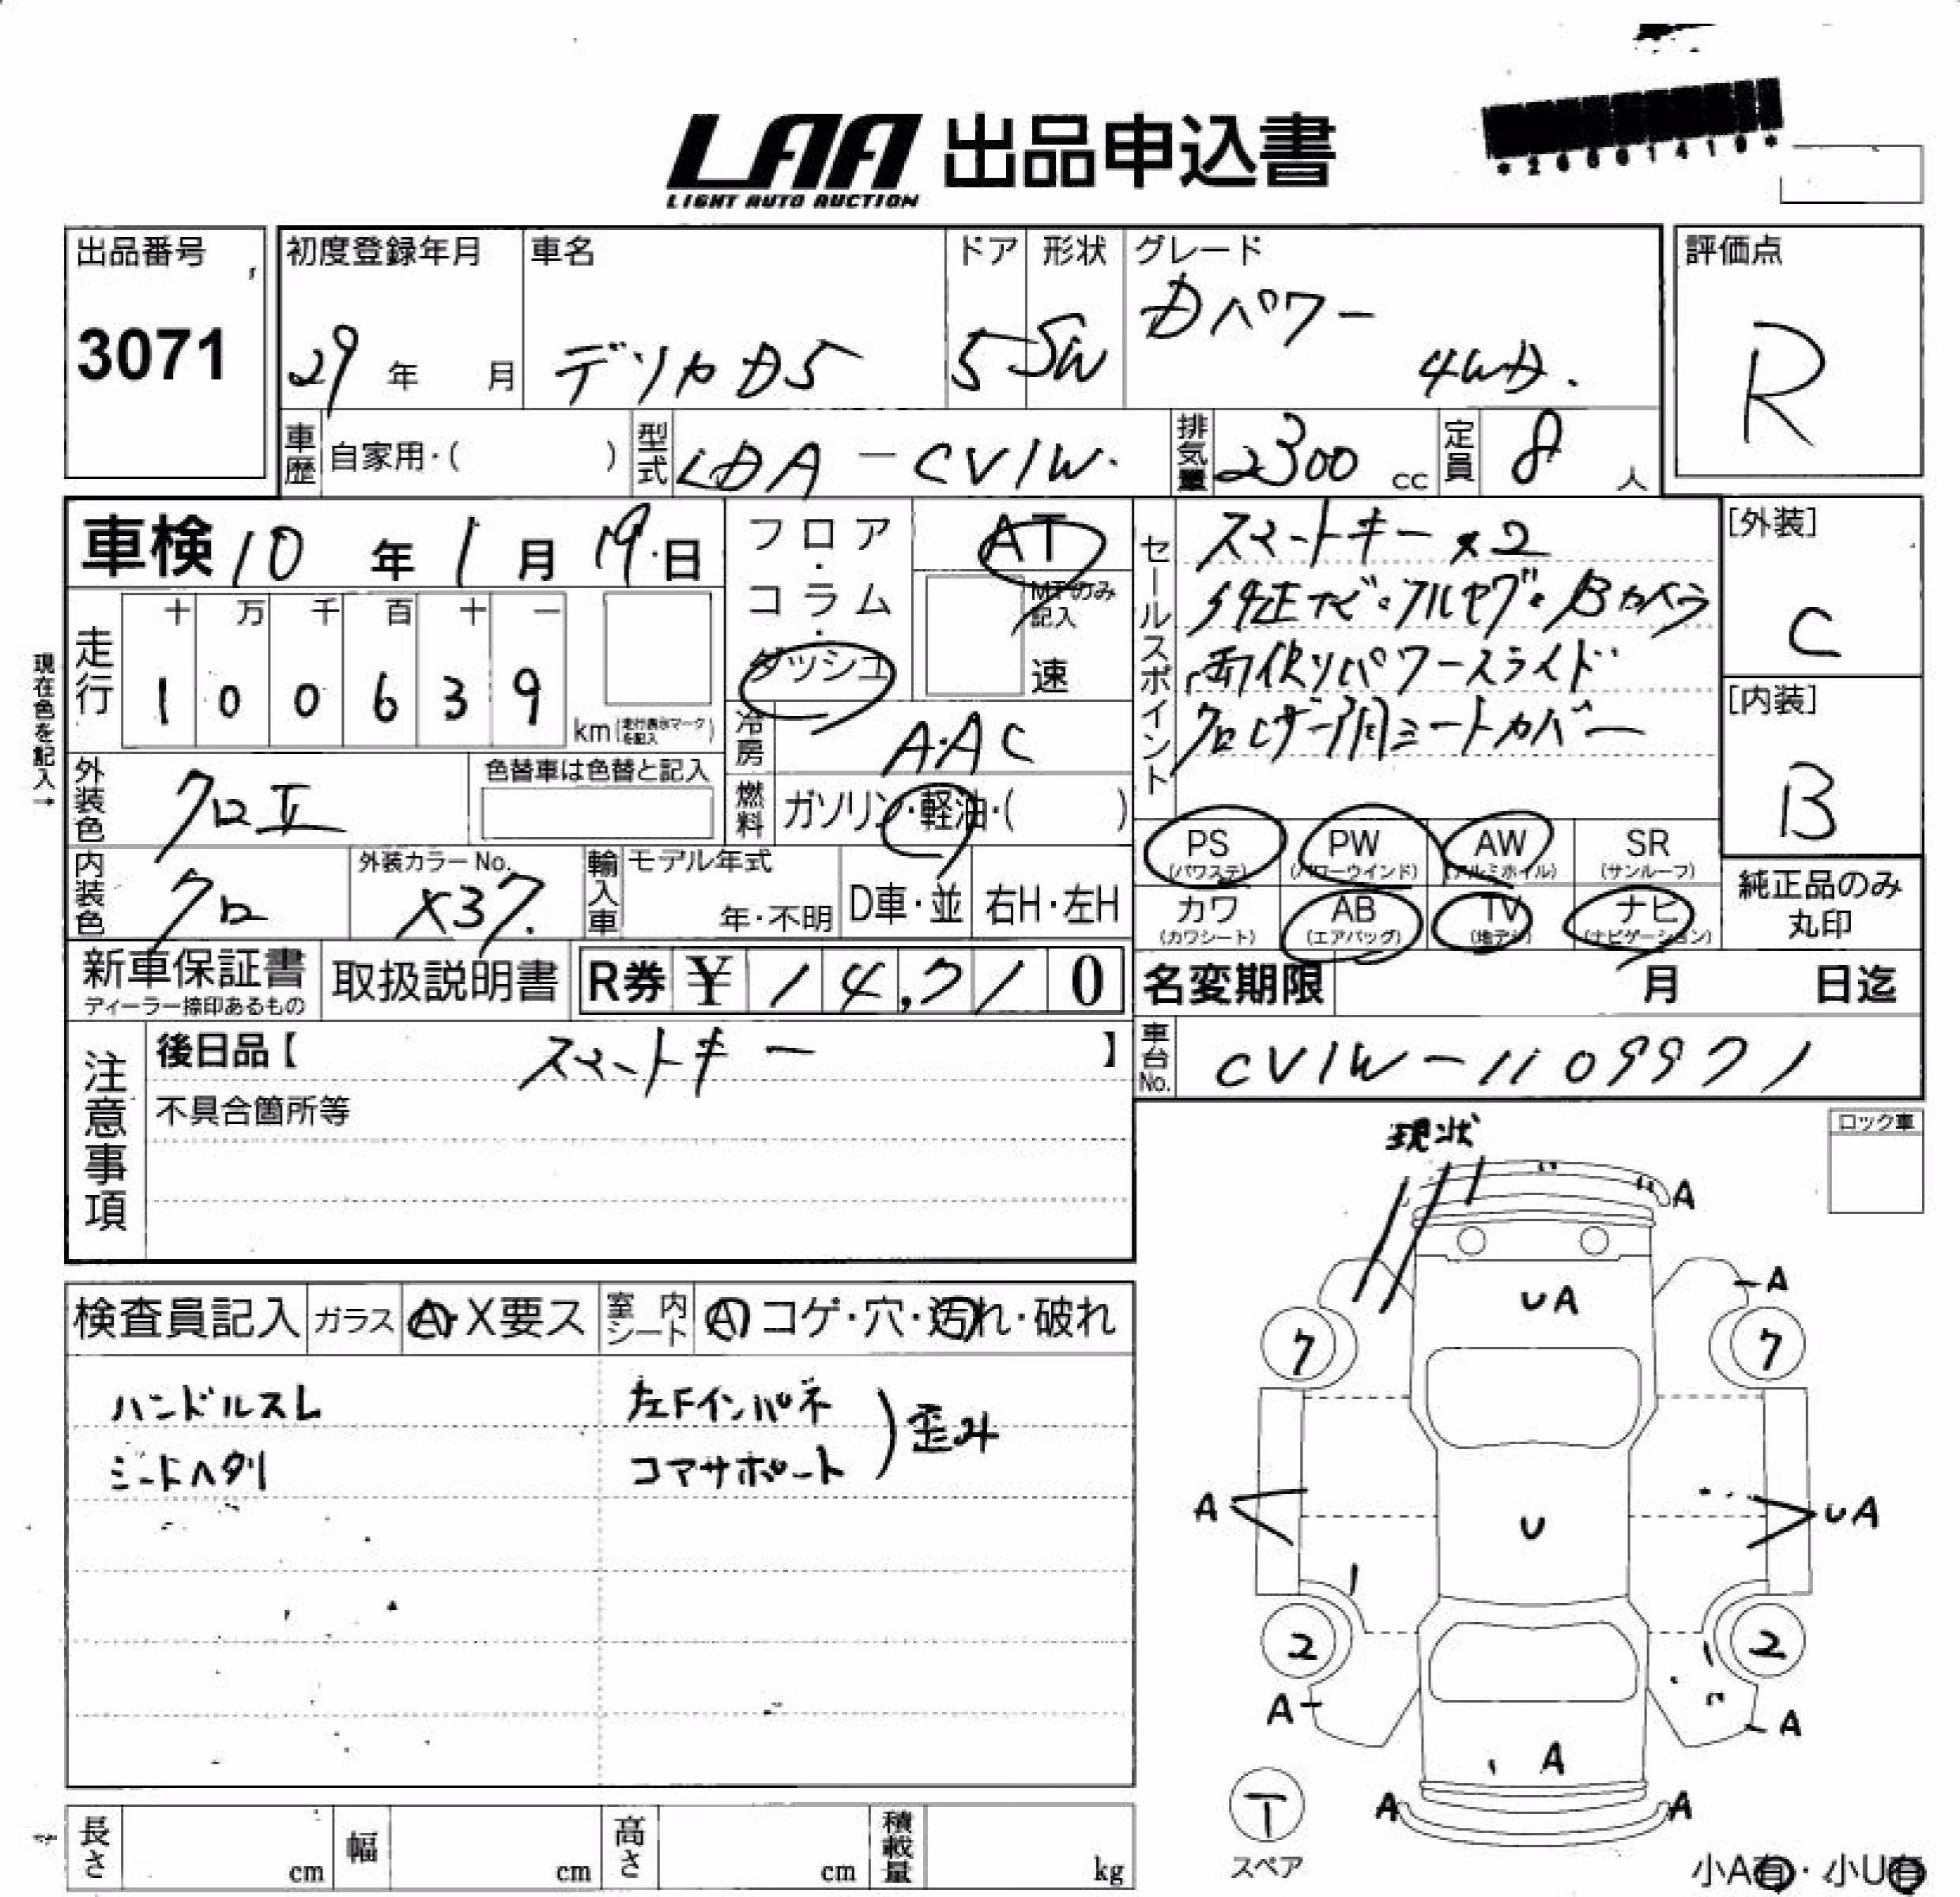 LAA 出品申込書
LIGHT AUTO AUCTION
出品番号
3071
初度登録年月
29年 月
車名
デリカD5
ドア
5
形状
SW
グレード
Dパワー
4WD.
評価点
R
車歴 自家用・( )
型式 LDA-CV1W.
排気量 2300 cc
定員 8 人
車検 10年 1月 19日
フロア・コラム・ダッシュ
AT
MTのみ記入
速
走行
十 万 千 百 十 一
1 0 0 6 3 9
km(走行表示マークを記入)
現在色を記入→
冷房 AAC
外装色 クロII
色替車は色替と記入
燃料 ガソリン・軽油・( )
内装色 クロ
外装カラーNo.
X37.
輸入車 モデル年式
年・不明
D車・並
右H・左H
セールスポイント
スマートキー×2
ナビ・フルセグ・Bカメラ
両側パワースライド
クロレザー調シートカバー
PS (パワステ)
PW (パワーウインド)
AW (アルミホイル)
SR (サンルーフ)
カワ (カワシート)
AB (エアバッグ)
TV (地デジ)
ナビ (ナビゲーション)
[外装]
C
[内装]
B
純正品のみ
丸印
新車保証書
ディーラー捺印あるもの
取扱説明書
R券 ¥ 14,710
名変期限 月 日迄
車台No. CV1W-1109971
注意事項
後日品【 スマートキー 】
不具合箇所等
検査員記入 ガラス A・X要ス
室内シート A コゲ・穴・汚れ・破れ
ハンドルスレ
シートヘタリ
左Fインパネ
コアサポート
)歪み
現状
ロック車
A
UA
A
7
7
A
U
UA
2
2
A
A
A
A
A
T
スペア
小A有・小U有
長さ cm
幅 cm
高さ cm
積載量 kg